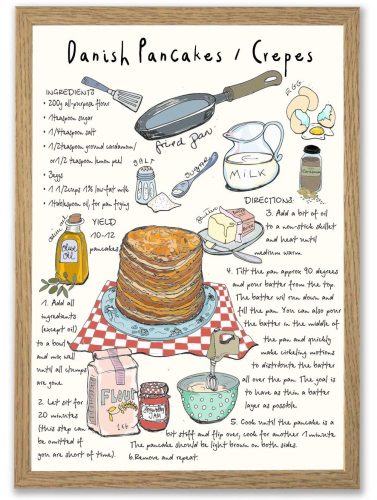 Danish Pancakes / Crepes
INGREDIENTS
• 200g all-purpose flour
• 1teaspoon sugar
• 1/4teaspoon salt
• 1/2teaspoon ground cardamom/
or 1/2 teaspoon lemon peel
• 3eggs
• 1 1/2cups 1% low-fat milk
• 1tablespoon oil, for pan frying
fried pan
EGG
SALT
Sugar
MILK
YIELD
10-12
pancakes
Olive
Oil
DIRECTIONS:
1. Add all
ingredients
(except oil)
to a bowl
and mix well
until all clumps
are gone.
2. Let sit for
20 minutes
(this step can
be omitted if
you are short of time).
3. Add a bit of oil
to a non-stick skillet
and heat until
medium warm.
4. Tilt the pan approx 90 degrees
and pour batter from the top.
The batter will run down and
fill the pan. You can also pour
the batter in the middle of
the pan and quickly
make cirkeling motions
to distribute the batter
all over the pan. The goal is
to have as thin a batter
layer as possible.
5. Cook until the pancake is a
bit stiff and flip over, cook for another 1 minute
The pancake should be light brown on both sides.
6.Remove and repeat.
FLOUR
1KG
JAM